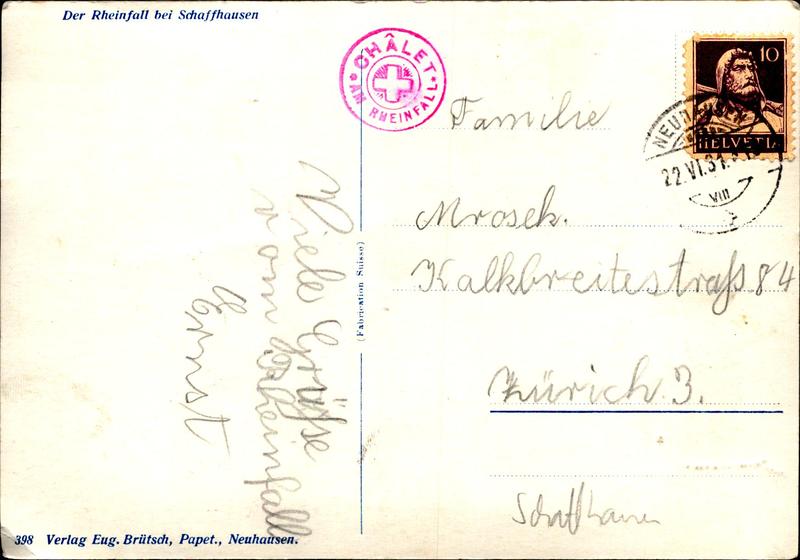 Der Rheinfall bei Schaffhausen
CHÂLET
AM RHEINFALL
10
HELVETIA
NEUHAUSEN
22.VI.31.
VIII
Familie
Mrosek.
Kalkbreitestraſs 84
Zürich 3.
Schaffhausen
Viele Grüße
vom Rheinfall
Ernst
(Fabrication Suisse)
398 Verlag Eug. Brütsch, Papet., Neuhausen.